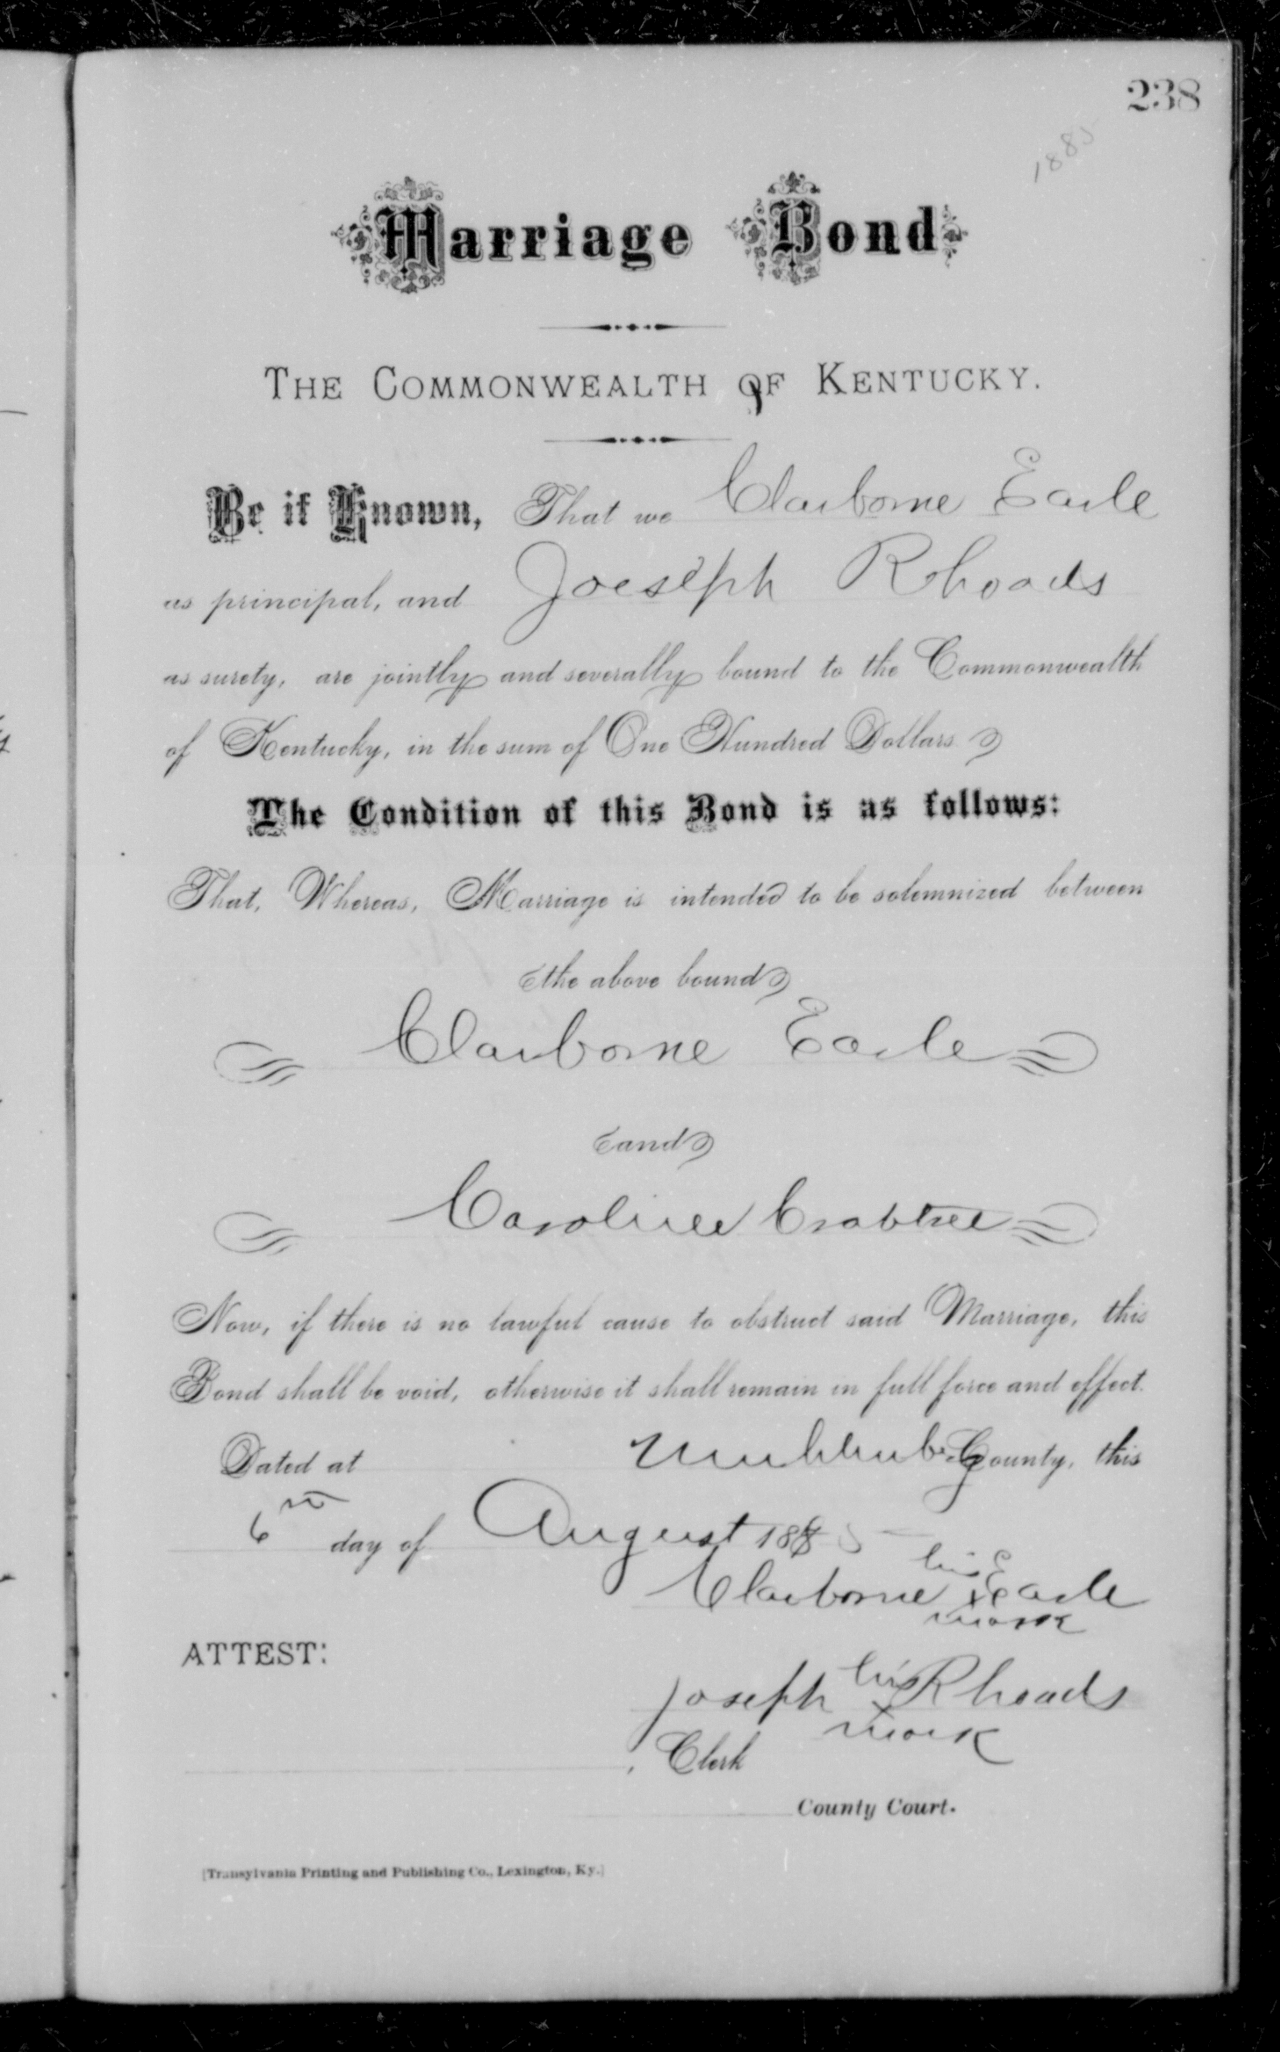 238
1885
Marriage Bond
THE COMMONWEALTH OF KENTUCKY.
Be it Known, That we Claiborne Earle
as principal, and Joeseph Rhoads
as surety, are jointly and severally bound to the Commonwealth
of Kentucky, in the sum of One Hundred Dollars.
The Condition of this Bond is as follows:
That, Whereas, Marriage is intended to be solemnized between
the above bound
Claiborne Earle
and
Caroline Crabtree
Now, if there is no lawful cause to obstruct said Marriage, this
Bond shall be void, otherwise it shall remain in full force and effect.
Dated at County, this
6 day of August 1885
Claiborne his x mark Earle
ATTEST:
Joseph his x mark Rhoads
, Clerk
County Court.
[Transylvania Printing and Publishing Co., Lexington, Ky.]